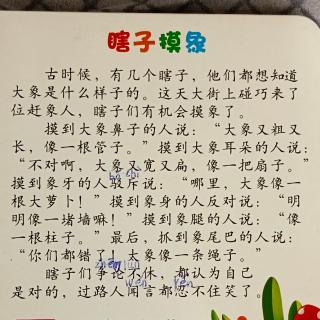 瞎子摸象
古时候，有几个瞎子，他们都想知道
大象是什么样子的。这天大街上碰巧来了
位赶象人，瞎子们有机会摸象了。
摸到大象鼻子的人说：“大象又粗又
长，像一根管子。”摸到大象耳朵的人说：
“不对啊，大象又宽又扁，像一把扇子。”
摸到象牙的人驳斥说：“哪里，大象像一
根大萝卜！”摸到象身的人反对说：“明
明像一堵墙嘛！”摸到象腿的人说：“像
一根柱子。”最后，抓到象尾巴的人说：
“你们都错了！大象像一条绳子。”
瞎子们争论不休，都认为自己
是对的，过路人闻言都忍不住笑了。